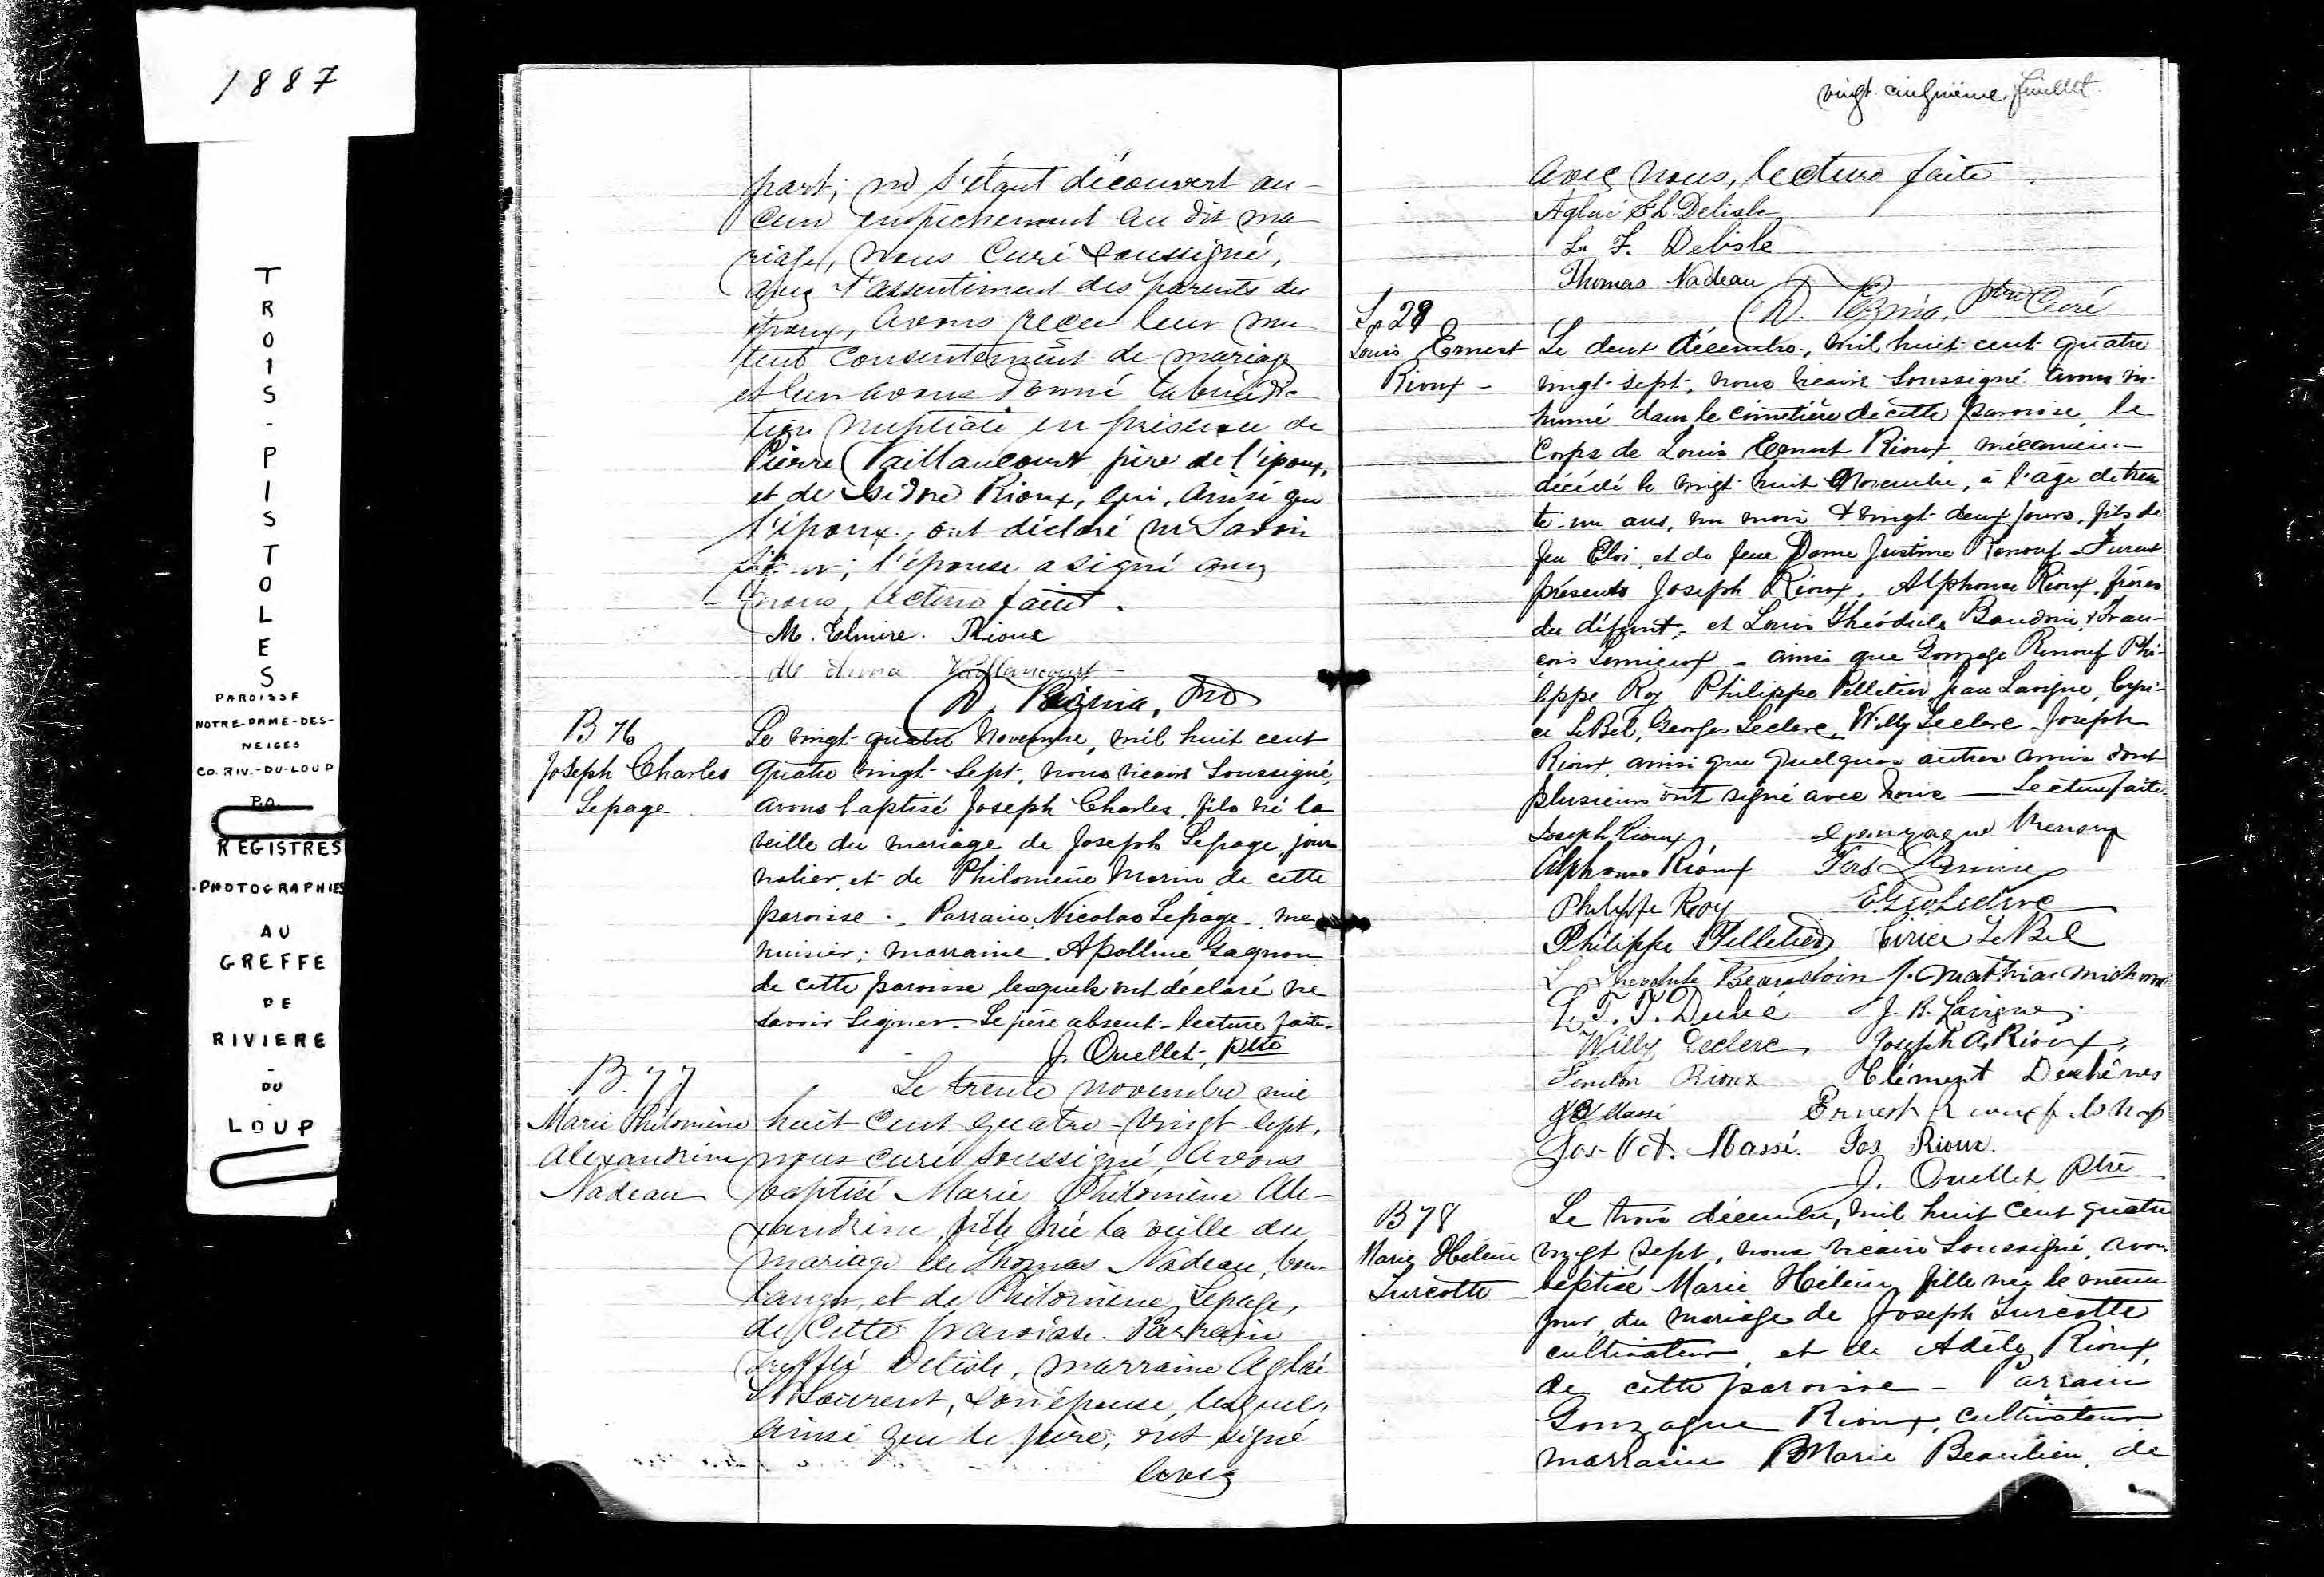 1887
TROIS-PISTOLES
PAROISSE
NOTRE-DAME-DES-
NEIGES
CO. RIV.-DU-LOUP
P.Q.
REGISTRES
PHOTOGRAPHIES
AU
GREFFE
DE
RIVIERE
-
DU
-
LOUP
part; ne s'étant découvert au-
cun empêchement au dit ma
riage, nous Curé soussigné,
avec l'assentiment des parents des
époux, avons reçu leur mu-
tuel consentement de mariage
et leur avons donné la bénédic
tion nuptiale en présence de
Pierre Vaillancourt père de l'époux,
et de Isidore Rioux, qui, ainsi que
l'époux, ont déclaré ne savoir
signer; l'épouse a signé avec
nous, lecture faite.
M. Elmire. Rioux
Vaillancourt
D. Vézina, Ptre
B 76
Joseph Charles
Lepage
Le vingt-quatre Novembre, mil huit cent
quatre vingt-sept, nous vicaire soussigné,
avons baptisé Joseph Charles, fils né la
veille du mariage de Joseph Lepage, jour
nalier, et de Philomène Morin de cette
paroisse. Parrain Nicolas Lepage, me
nuisier; marraine Apolline Gagnon
de cette paroisse lesquels ont déclaré ne
savoir signer. Le père absent - lecture faite.
J. Ouellet, ptre
B. 77
Marie Philomène
Alexandrine
Nadeau
Le trente novembre mil
huit cent quatre-vingt-sept,
nous curé soussigné, avons
baptisé Marie Philomène Ale-
xandrine, fille née la veille du
mariage de Thomas Nadeau, bou-
langer, et de Philomène Lepage,
de cette paroisse. Parrain
Delisle, marraine Aglaé
St Laurent, son épouse, lesquels,
ainsi que le père, ont signé
avec
vingt cinquième feuillet
avec nous, lecture faite.
Aglaé St L. Delisle
F. Delisle
Thomas Nadeau
D. Vézina, Ptre Curé
S. 28
Louis Ernest
Rioux -
Le deux décembre, mil huit cent quatre
vingt-sept, nous vicaire soussigné avons in-
humé dans le cimetière de cette paroisse, le
corps de Louis Ernest Rioux, mécanicien
décédé le vingt-huit Novembre, à l'âge de tren
te-un ans, un mois & vingt-deux jours, fils de
feu Eloi, et de feue Dame Justine Renouf - Furent
présents Joseph Rioux, Alphonse Rioux, frères
du défunt; et Louis Théodule Baudoin, & Fran-
çois Lemieux - ainsi que Gonzage Renouf Phi-
lippe Roy Philippe Pelletier, Jean Lavigne, Cyri-
ce LeBel, Georges Leclerc, Willy Leclerc - Joseph
Rioux, ainsi que quelques autres amis dont
plusieurs ont signé avec nous - Lecture faite.
Joseph Rioux Gonzague Renouf
Alphonse Rioux Frs Lemieux
Philippe Roy E. Geo Leclerc
Philippe Pelletier Cirice LeBel
L Theodule Beaudoin J. Mathias Michaud
L. T. T. Dubé J. B. Lavigne
Willy Leclerc, Joseph A. Rioux,
Fenelon Rioux Clément Deschênes
Massé Ernest Rioux
Jos-Oct. Massé. Jos Rioux.
J. Ouellet Ptre
B 78
Marie Hélène
Turcotte -
Le trois décembre, mil huit cent quatre
vingt sept, nous vicaire soussigné, avons
baptisé Marie Hélène, fille née le même
jour, du mariage de Joseph Turcotte
cultivateur, et de Adèle Rioux,
de cette paroisse - Parrain
Gonzague Rioux, cultivateur
marraine Marie Beaulieu, de